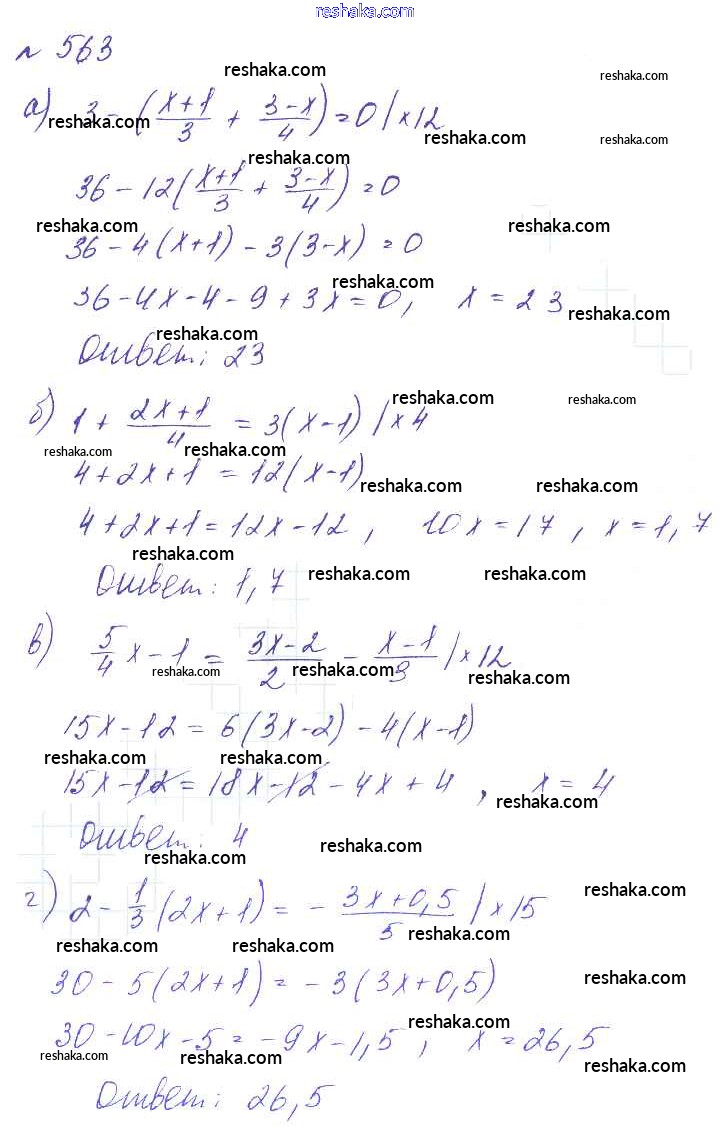 reshaka.com
№ 563
reshaka.com reshaka.com
а) 3 - (x+1/3 + 3-x/4) = 0 | ×12
reshaka.com reshaka.com reshaka.com
reshaka.com
36 - 12(x+1/3 + 3-x/4) = 0
reshaka.com reshaka.com
36 - 4(x+1) - 3(3-x) = 0
reshaka.com
36 - 4x - 4 - 9 + 3x = 0, x = 23
reshaka.com
reshaka.com
Ответ: 23
reshaka.com reshaka.com
б) 1 + 2x+1/4 = 3(x-1) | ×4
reshaka.com reshaka.com
4 + 2x + 1 = 12(x-1)
reshaka.com reshaka.com
4 + 2x + 1 = 12x - 12, 10x = 17, x = 1,7
reshaka.com
reshaka.com reshaka.com
Ответ: 1,7
в) 5/4 x - 1 = 3x-2/2 - x-1/3 | ×12
reshaka.com reshaka.com
15x - 12 = 6(3x-2) - 4(x-1)
reshaka.com reshaka.com
15x - 12 = 18x - 12 - 4x + 4, x = 4
reshaka.com
Ответ: 4
reshaka.com reshaka.com
г) 2 - 1/3 (2x+1) = - 3x+0,5/5 | ×15
reshaka.com
reshaka.com reshaka.com reshaka.com
30 - 5(2x+1) = -3(3x+0,5)
reshaka.com
reshaka.com
30 - 10x - 5 = -9x - 1,5, x = 26,5
reshaka.com reshaka.com reshaka.com
Ответ: 26,5